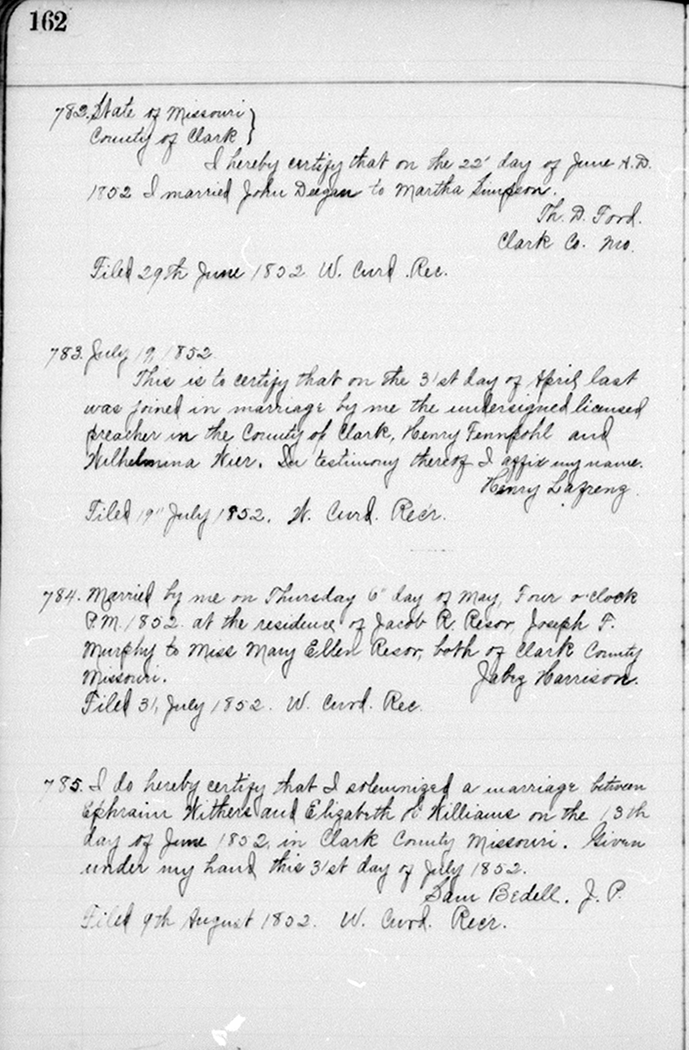 162
782. State of Missouri }
County of Clark
I hereby certify that on the 22" day of June A.D.
1852 I married John Deegan to Martha Simpson.
Th. D. Ford.
Clark Co. Mo.
Filed 29th June 1852 W. Curd. Rec.
783. July 19, 1852
This is to certify that on the 31st day of April last
was joined in marriage by me the undersigned licensed
preacher in the County of Clark, Henry Fennpohl and
Wilhelmina Wier. In testimony thereof I affix my name.
Henry Lafrenz.
Filed 19" July 1852. W. Curd. Recr.
784. Married by me on Thursday 6" day of May, Four o'clock
P.M. 1852 at the residence of Jacob R. Resor, Joseph F.
Murphy to Miss Mary Ellen Resor, both of Clark County
Missouri. Jabez Harrison.
Filed 31, July 1852. W. Curd. Rec.
785. I do hereby certify that I solemnized a marriage between
Ephraim Withers and Elizabeth Williams on the 13th
day of June 1852, in Clark County Missouri. Given
under my hand this 31st day of July 1852.
Sam Bedell. J. P.
Filed 9th August 1852. W. Curd. Recr.